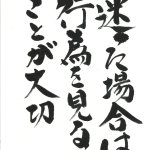 迷った場合は
行為を見る
ことが大切